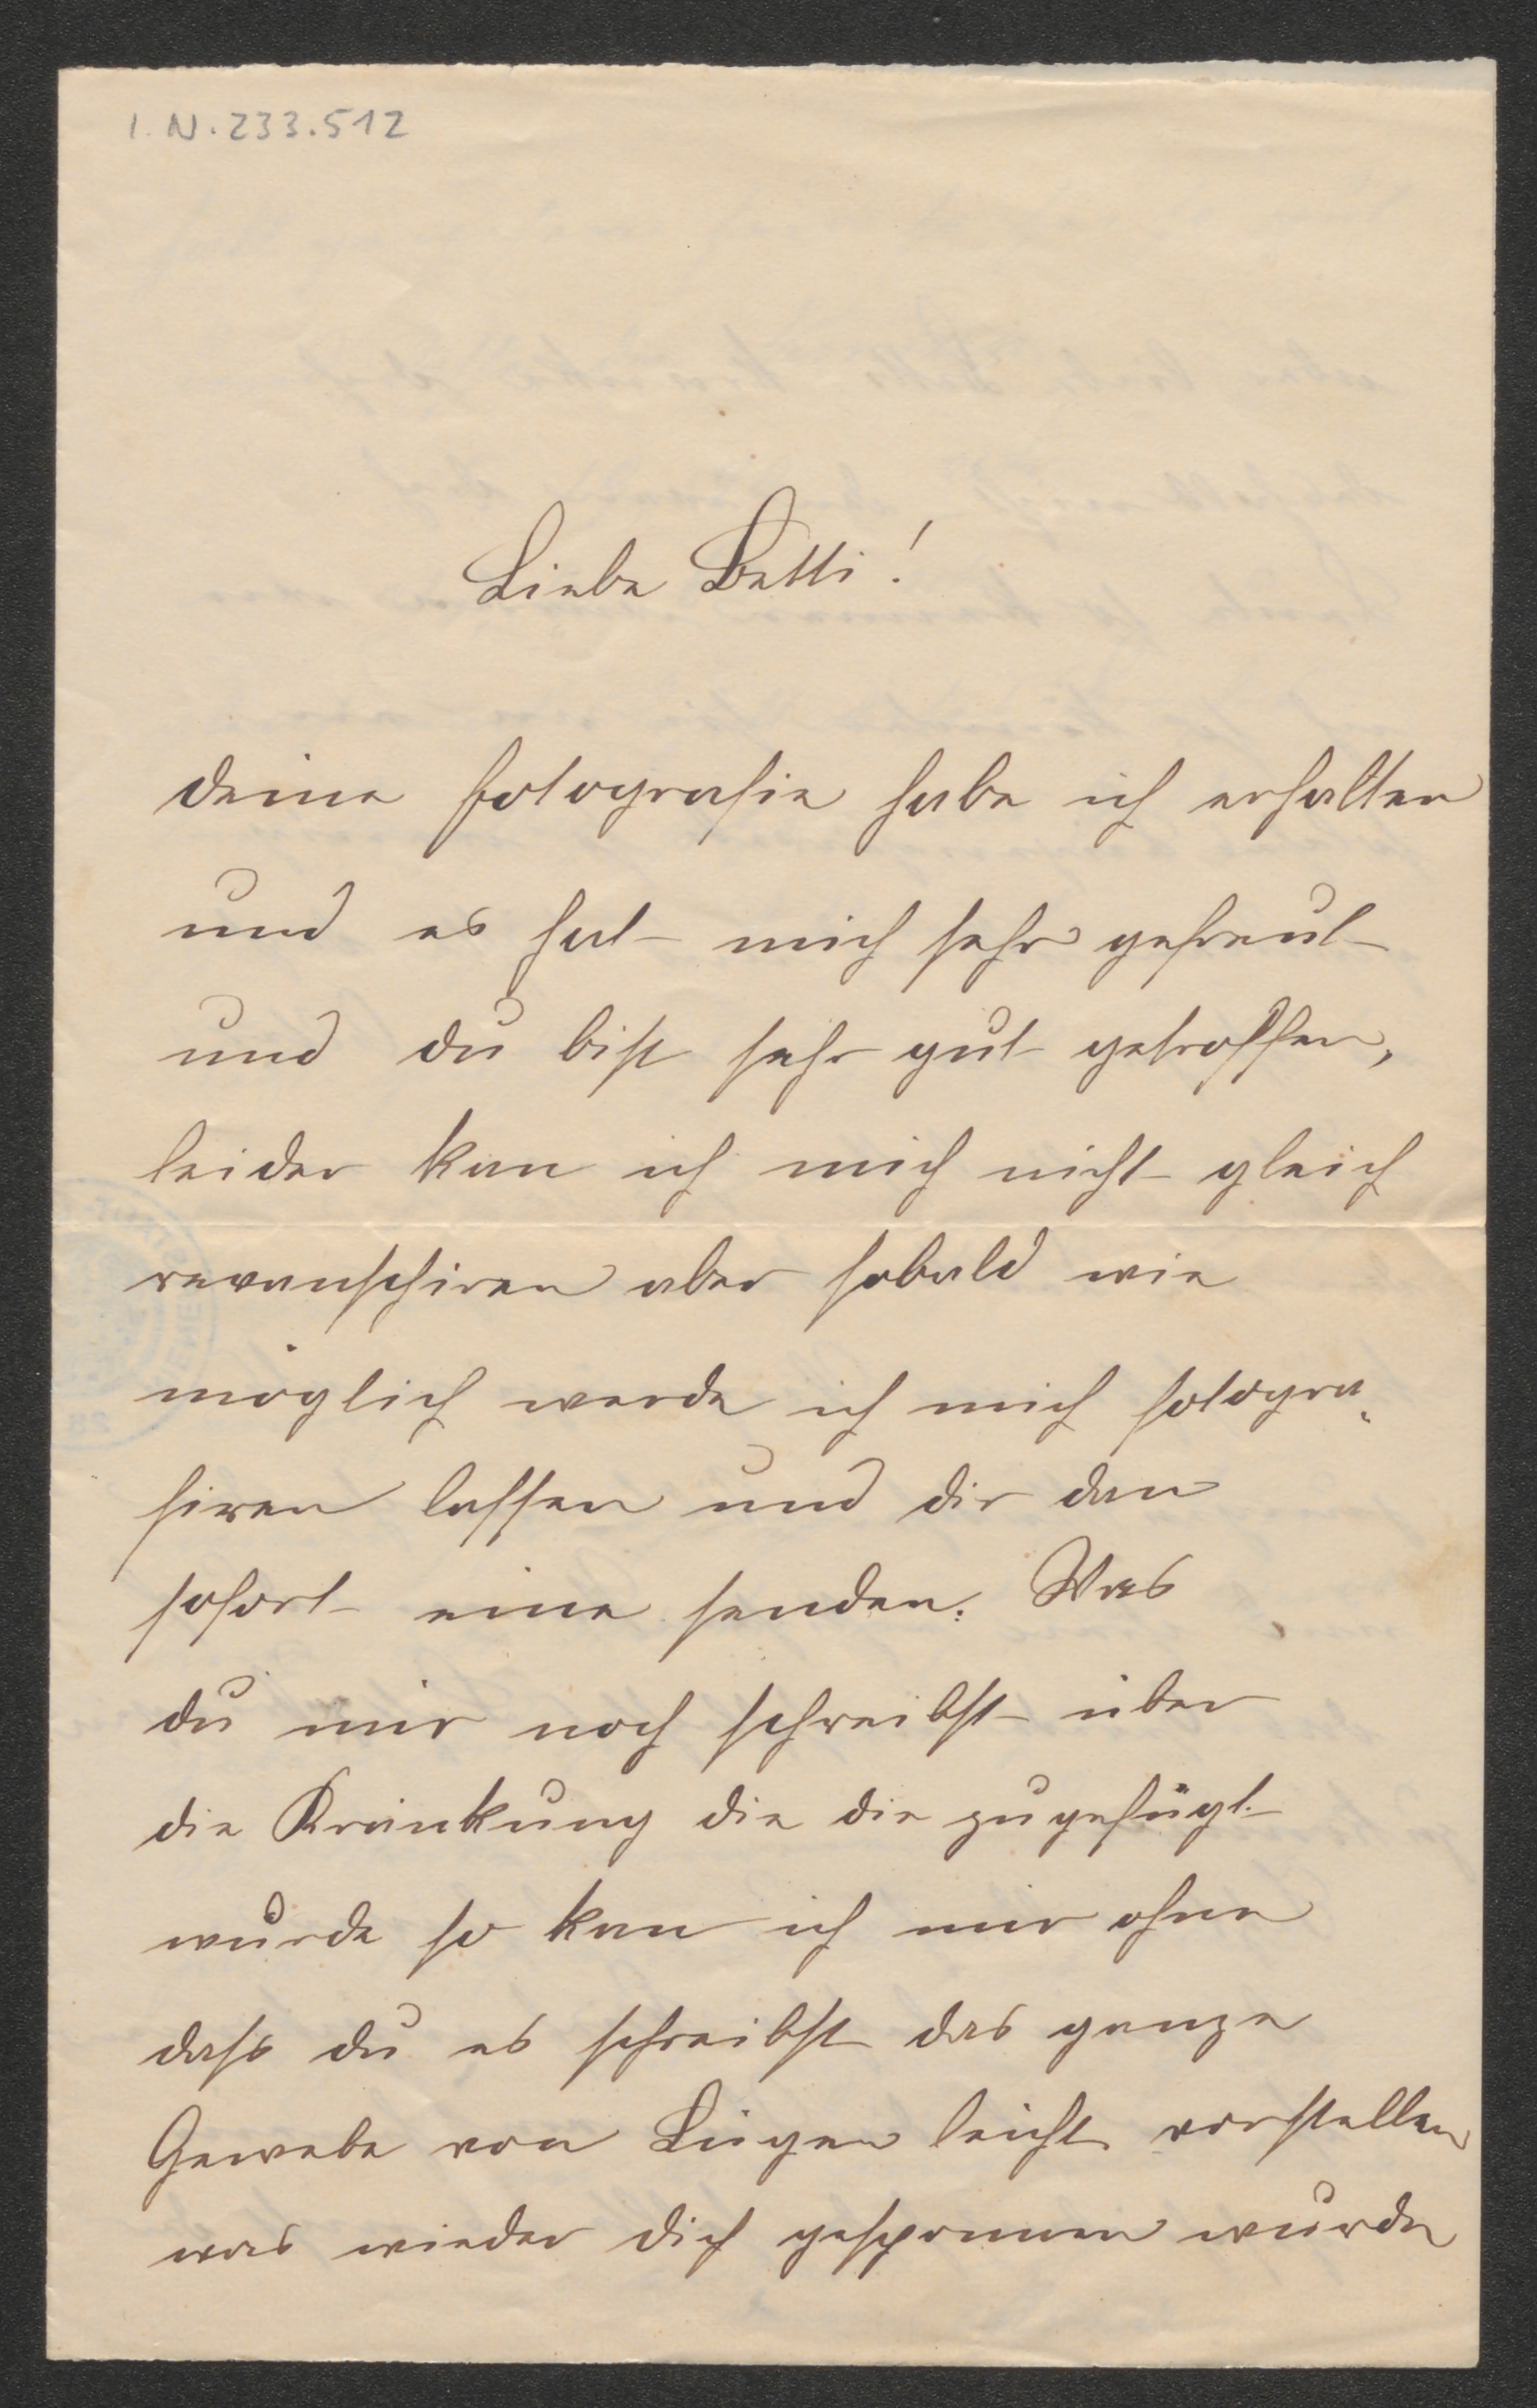 I.N. 233.512
Liebe Betti!
deine fotografie habe ich erhalten
und es hat mich sehr gefreut
und du bist sehr gut getroffen,
leider kan ich mich nicht gleich
revanschiren aber sobald wie
möglich werde ich mich fotogra„
firen lassen und dir dan
sofort eine senden. Was
du mir noch schreibst über
die Kränkung die dir zugefügt
wurde so kan ich mir ohne
dass du es schreibst das ganze
Gewebe von Lügen leicht vorstellen
was wieder dich gesponnen wurde